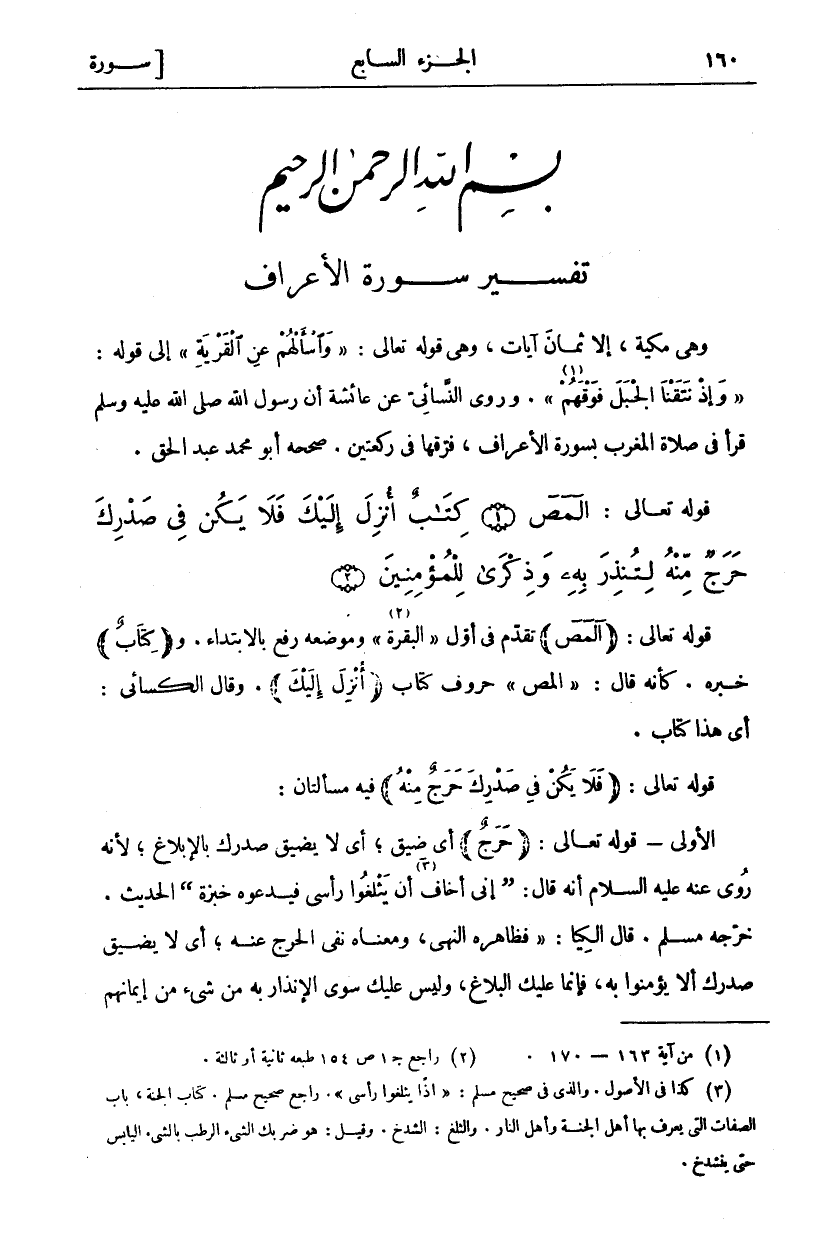 ١٦٠ الجزء السابع [سورة
بسم الله الرحمن الرحيم
تفسير سورة الأعراف
وهى مكية ، إلا ثمان آيات ، وهى قوله تعالى : « وَٱسْأَلْهُمْ عَنِ ٱلْقَرْيَةِ » إلى قوله :
« وَإِذْ نَتَقْنَا الْجَبَلَ فَوْقَهُمْ (١) » . وروى النَّسائىّ عن عائشة أن رسول الله صلى الله عليه وسلم
قرأ فى صلاة المغرب بسورة الأعراف ، فرّقها فى ركعتين . صححه أبو محمد عبد الحق .
قوله تعالى : الٓمٓصٓ (١) كِتَٰبٌ أُنزِلَ إِلَيْكَ فَلَا يَكُن فِى صَدْرِكَ
حَرَجٌ مِّنْهُ لِتُنذِرَ بِهِۦ وَذِكْرَىٰ لِلْمُؤْمِنِينَ (٢)
قوله تعالى : ﴿الٓمٓصٓ﴾ تقدّم فى أوّل « البقرة (٢) » وموضعه رفع بالابتداء . و﴿كِتَابٌ﴾
خبره . كأنه قال : « المص » حروف كتاب ﴿أُنْزِلَ إِلَيْكَ﴾ . وقال الكسائى :
أى هذا كتاب .
قوله تعالى : ﴿فَلَا يَكُنْ فِي صَدْرِكَ حَرَجٌ مِنْهُ﴾ فيه مسألتان :
الأولى – قوله تعالى : ﴿حَرَجٌ﴾ أى ضيق ؛ أى لا يضيق صدرك بالإبلاغ ؛ لأنه
رُوى عنه عليه السلام أنه قال : ” إنى أخاف أن يَثْلغُوا (٣) رأسى فيدعوه خبزة “ الحديث .
خرّجه مسلم . قال الكِيَا : « فظاهره النهى ، ومعناه نفى الحرج عنه ؛ أى لا يضيق
صدرك ألا يؤمنوا به ، فإنما عليك البلاغ ، وليس عليك سوى الإنذار به من شىء من إيمانهم
(١) من آية ١٦٣ – ١٧٠ . (٢) راجع جـ ١ ص ١٥٤ طبعه ثانية أو ثالثة .
(٣) كذا فى الأصول . والذى فى صحيح مسلم : « اذًا يثلغوا رأسى » . راجع صحيح مسلم . كتاب الجنة ، باب
الصفات التى يعرف بها أهل الجنة وأهل النار . والثلغ : الشدخ . وقيل : هو ضربك الشىء الرطب بالشىء اليابس
حتى ينشدخ .